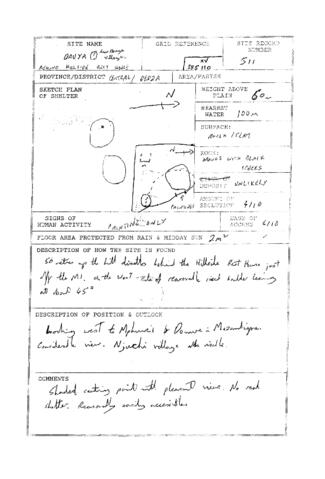 SITE NAME
GRID REFERENCE
SITE RECORD NUMBER
DAUYA ①
511
BEHIND HILLSIDE REST HOUSE
585120
PROVINCE/DISTRICT CENTRAL/ DEDZA
AREA/PARISH
SKETCH PLAN
OF SHELTER
N
HEIGHT ABOVE
PLAIN 60m
NEAREST
WATER 100m
SURFACE:
ROCK / FLAT
N
ROCK:
WITH BLACK
DEPOSIT UNLIKELY
AMOUNT OF
SECLUSION 4/10
SIGNS OF
HUMAN ACTIVITY PAINTING ONLY
EASE OF
ACCESS 6/10
FLOOR AREA PROTECTED FROM RAIN & MIDDAY SUN 2m²
DESCRIPTION OF HOW THE SITE IS FOUND
50 metres up the hill directly behind the Hillside Rest House just
off the M1. On the west side of reasonable sized boulder leaning
at about 45°
DESCRIPTION OF POSITION & OUTLOOK
Looking west to & Domwe in Mozambique.
Considerable view. village also visible.
COMMENTS
Shaded resting point with pleasant view. No real
shelter. Reasonably easily accessible